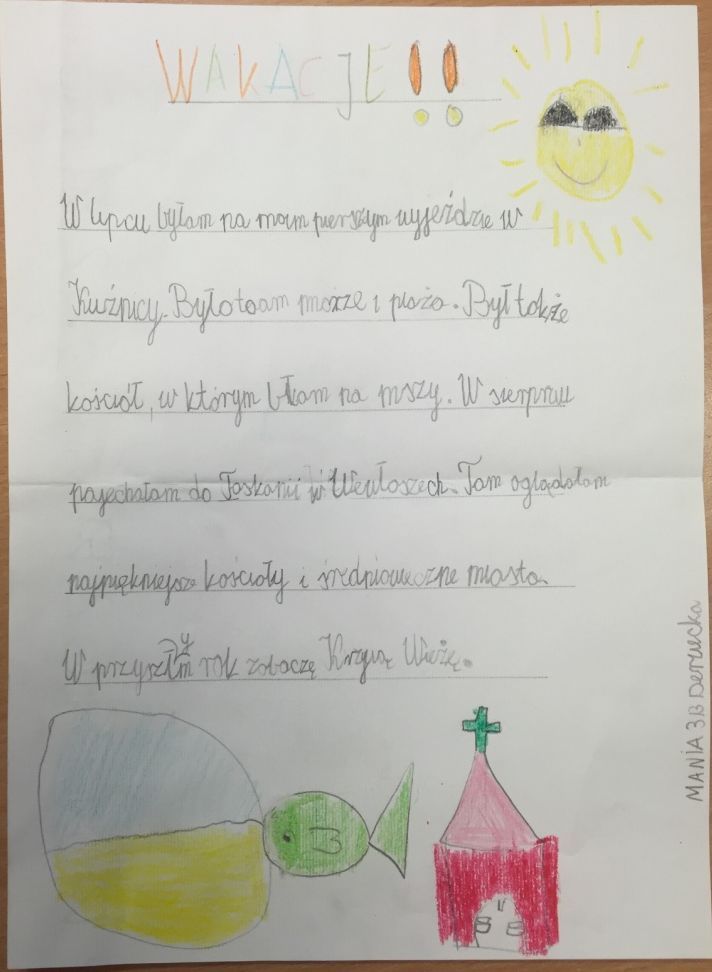 WAKACJE!!
W lipcu byłam na moim pierszym wyjeździe w
Kuźnicy. Było toam morze i plaża. Był także
kościół, w którym błam na mszy. W sierpniu
pojechałam do Toskanii w Wewłoszech. Tam oglądałam
najpiękniejsze kościoły i średniowieczne miasta.
W przyszłym rok zobaczę Krzywą Wieżę.
MANIA 3B Derwecka
B